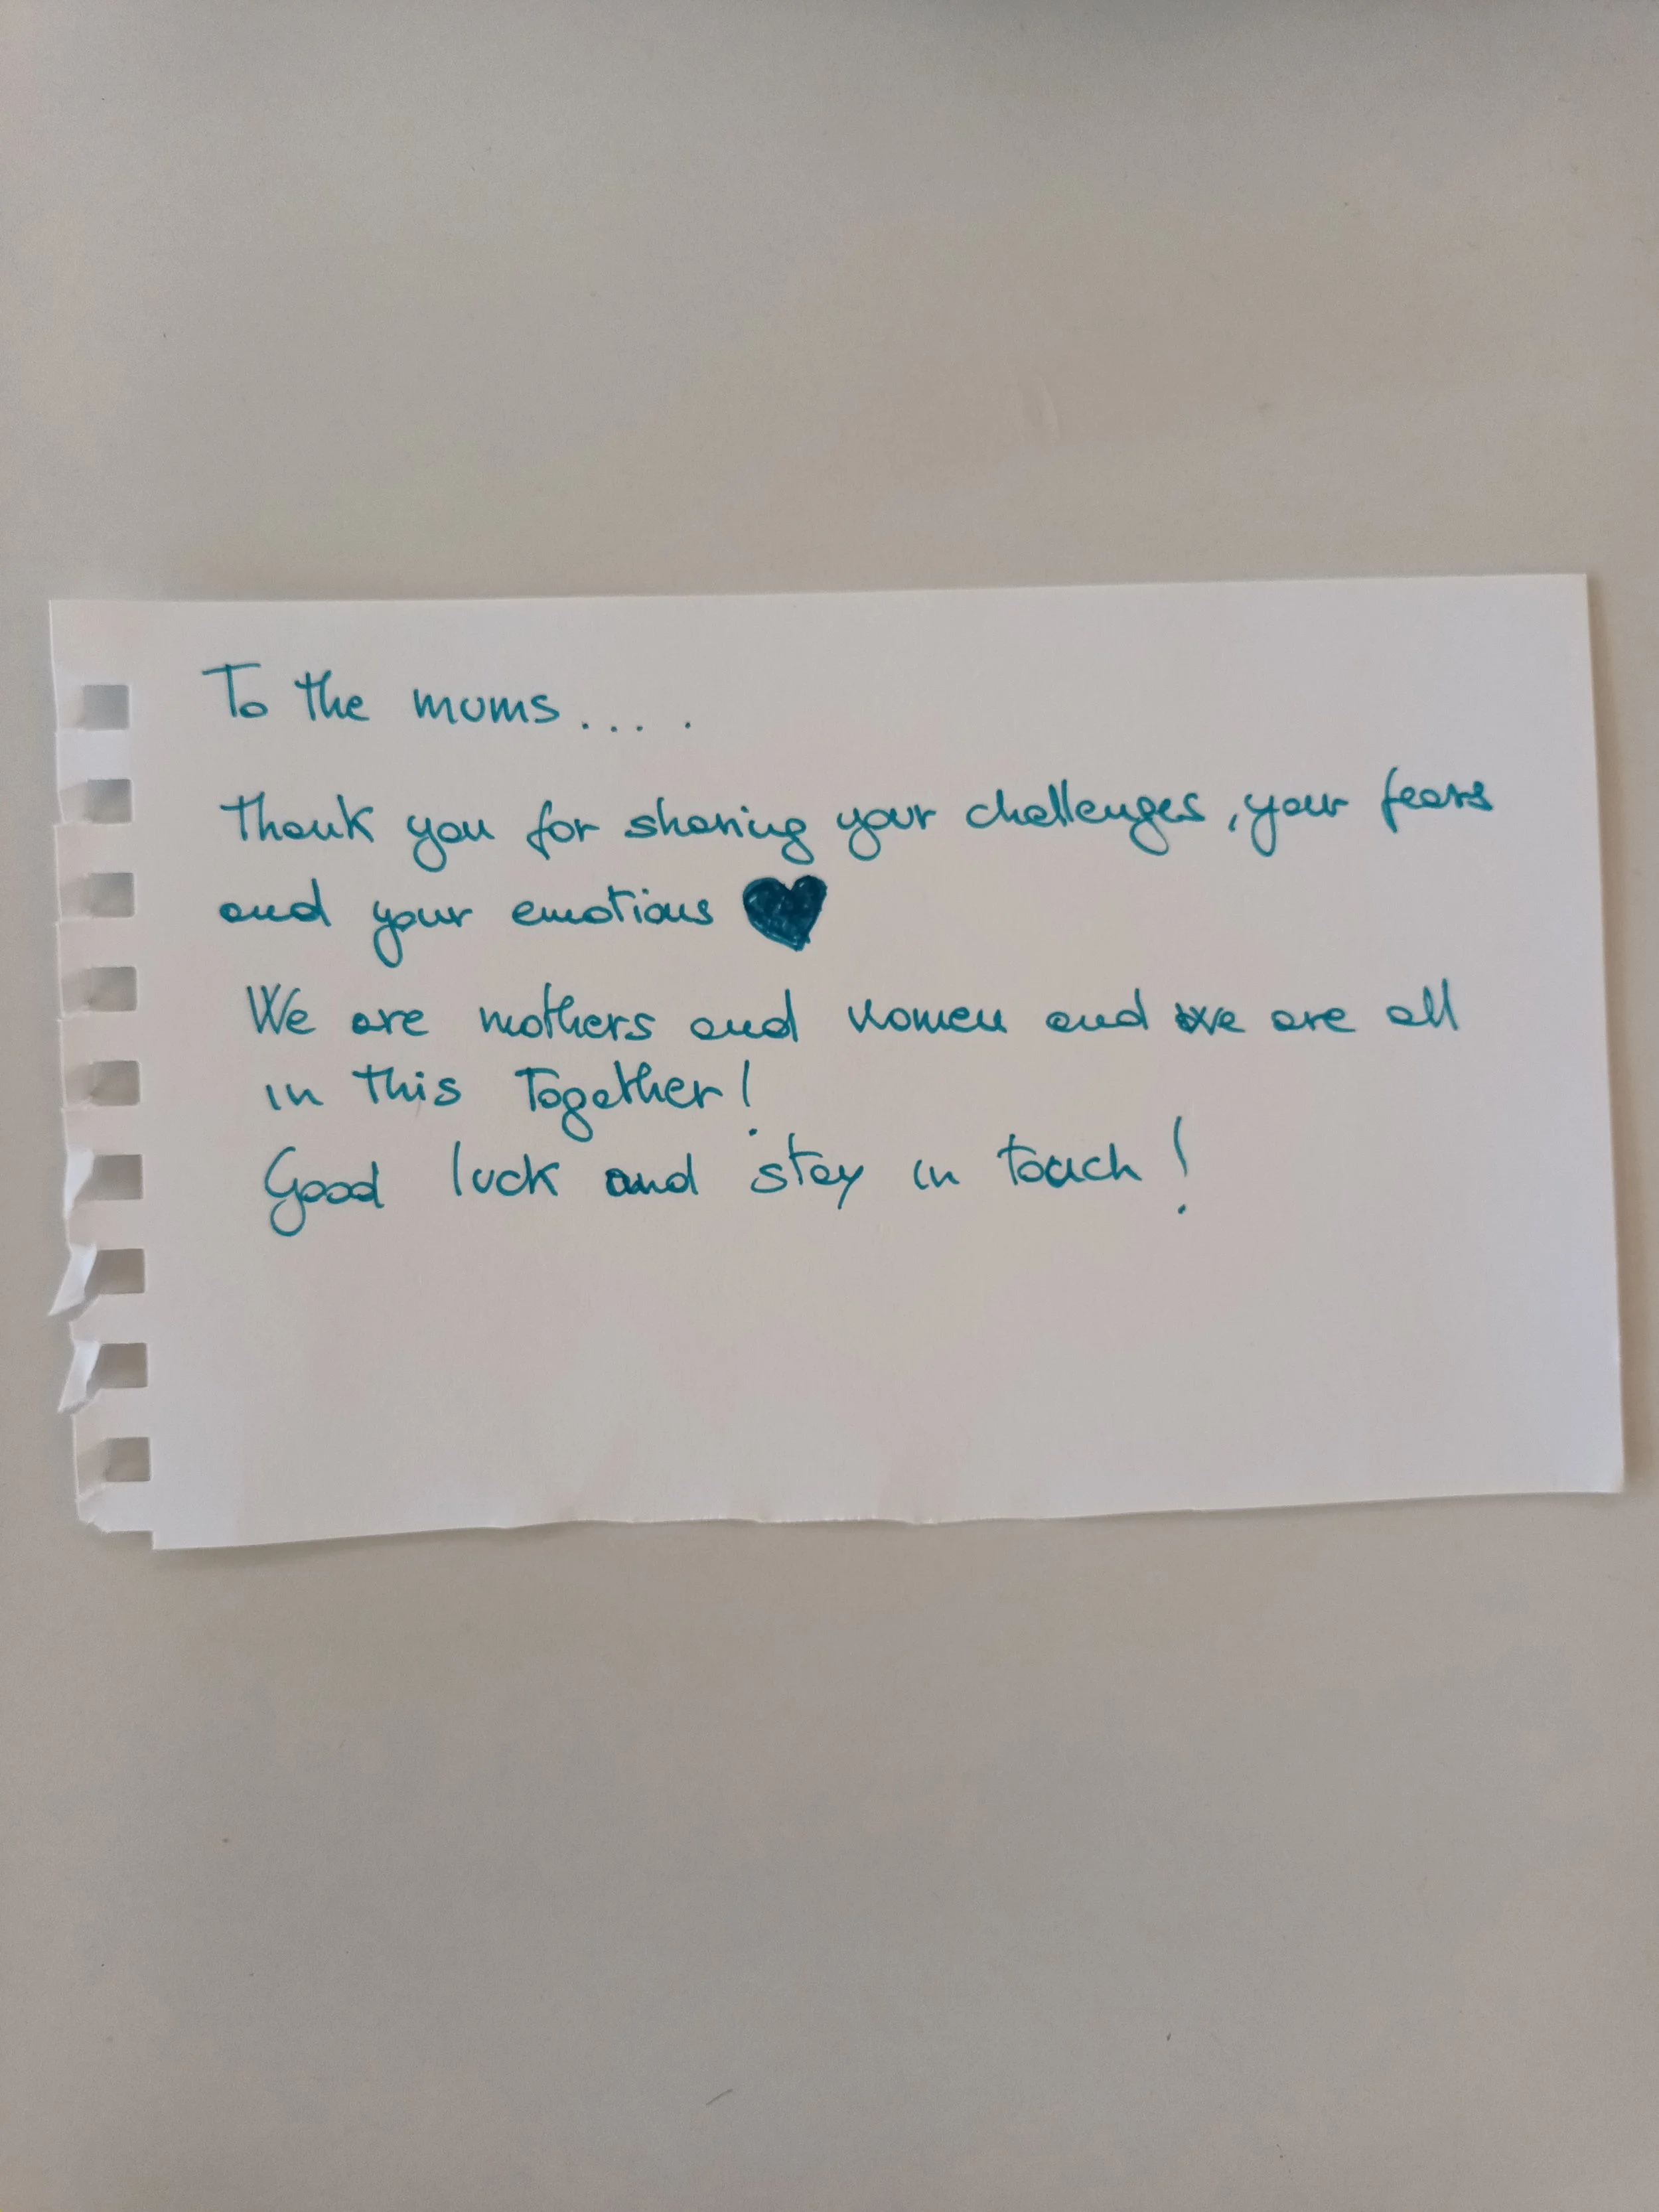 To the mums... .
Thank you for sharing your challenges, your fears
and your emotions ♥
We are mothers and women and we are all
in this together!
Good luck and stay in touch!